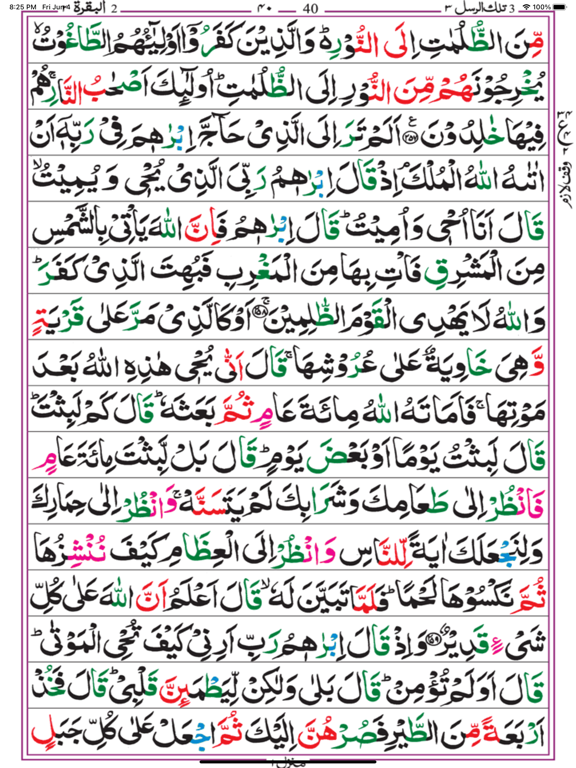 8:25 PM Fri Jun 4 100%
2 البقرة ٢ ٤٠ 40 تلك الرسل ٣ 3
مِّنَ الظُّلُمٰتِ اِلَى النُّوْرِ۬ؕ وَالَّذِيْنَ كَفَرُوْۤا اَوْلِيٰٓـُٔهُمُ الطَّاغُوْتُۙ
يُخْرِجُوْنَهُمْ مِّنَ النُّوْرِ اِلَى الظُّلُمٰتِؕ اُولٰٓئِكَ اَصْحٰبُ النَّارِۚ هُمْ
فِيْهَا خٰلِدُوْنَ ﴿٢٥٧﴾ اَلَمْ تَرَ اِلَى الَّذِىْ حَآجَّ اِبْرٰهٖمَ فِىْ رَبِّهٖۤ اَنْ
اٰتٰىهُ اللّٰهُ الْمُلْكَۘ اِذْ قَالَ اِبْرٰهٖمُ رَبِّىَ الَّذِىْ يُحْىٖ وَيُمِيْتُۙ
قَالَ اَنَا اُحْىٖ وَاُمِيْتُؕ قَالَ اِبْرٰهٖمُ فَاِنَّ اللّٰهَ يَاْتِىْ بِالشَّمْسِ
مِنَ الْمَشْرِقِ فَاْتِ بِهَا مِنَ الْمَغْرِبِ فَبُهِتَ الَّذِىْ كَفَرَؕ
وَاللّٰهُ لَا يَهْدِى الْقَوْمَ الظّٰلِمِيْنَۚ ﴿٢٥٨﴾ اَوْ كَالَّذِىْ مَرَّ عَلٰى قَرْيَةٍ
وَّهِىَ خَاوِيَةٌ عَلٰى عُرُوْشِهَاۚ قَالَ اَنّٰى يُحْىٖ هٰذِهِ اللّٰهُ بَعْدَ
مَوْتِهَاۚ فَاَمَاتَهُ اللّٰهُ مِائَةَ عَامٍ ثُمَّ بَعَثَهٗؕ قَالَ كَمْ لَبِثْتَؕ
قَالَ لَبِثْتُ يَوْمًا اَوْ بَعْضَ يَوْمٍؕ قَالَ بَلْ لَّبِثْتَ مِائَةَ عَامٍ
فَانْظُرْ اِلٰى طَعَامِكَ وَشَرَابِكَ لَمْ يَتَسَنَّهْۚ وَانْظُرْ اِلٰى حِمَارِكَ
وَلِنَجْعَلَكَ اٰيَةً لِّلنَّاسِ وَانْظُرْ اِلَى الْعِظَامِ كَيْفَ نُنْشِزُهَا
ثُمَّ نَكْسُوْهَا لَحْمًاؕ فَلَمَّا تَبَيَّنَ لَهٗۙ قَالَ اَعْلَمُ اَنَّ اللّٰهَ عَلٰى كُلِّ
شَىْءٍ قَدِيْرٌ ﴿٢٥٩﴾ وَاِذْ قَالَ اِبْرٰهٖمُ رَبِّ اَرِنِىْ كَيْفَ تُحْىِ الْمَوْتٰىؕ
قَالَ اَوَلَمْ تُؤْمِنْؕ قَالَ بَلٰى وَلٰكِنْ لِّيَطْمَئِنَّ قَلْبِىْؕ قَالَ فَخُذْ
اَرْبَعَةً مِّنَ الطَّيْرِ فَصُرْهُنَّ اِلَيْكَ ثُمَّ اجْعَلْ عَلٰى كُلِّ جَبَلٍ
منزل ١
وقف لازم